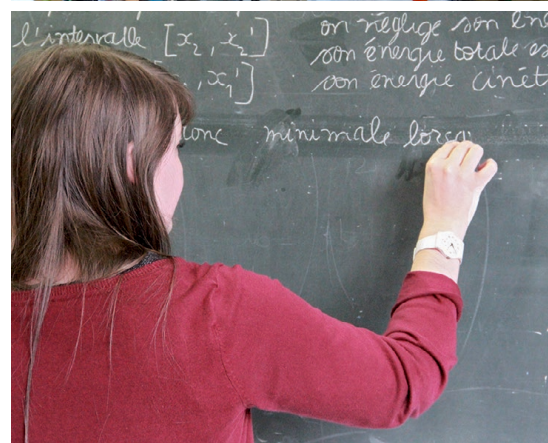 l'intervalle [x₂, x₂']
, x₁']
on néglige son éne
son énergie totale es
son énergie cinét
onc minimale lorsq